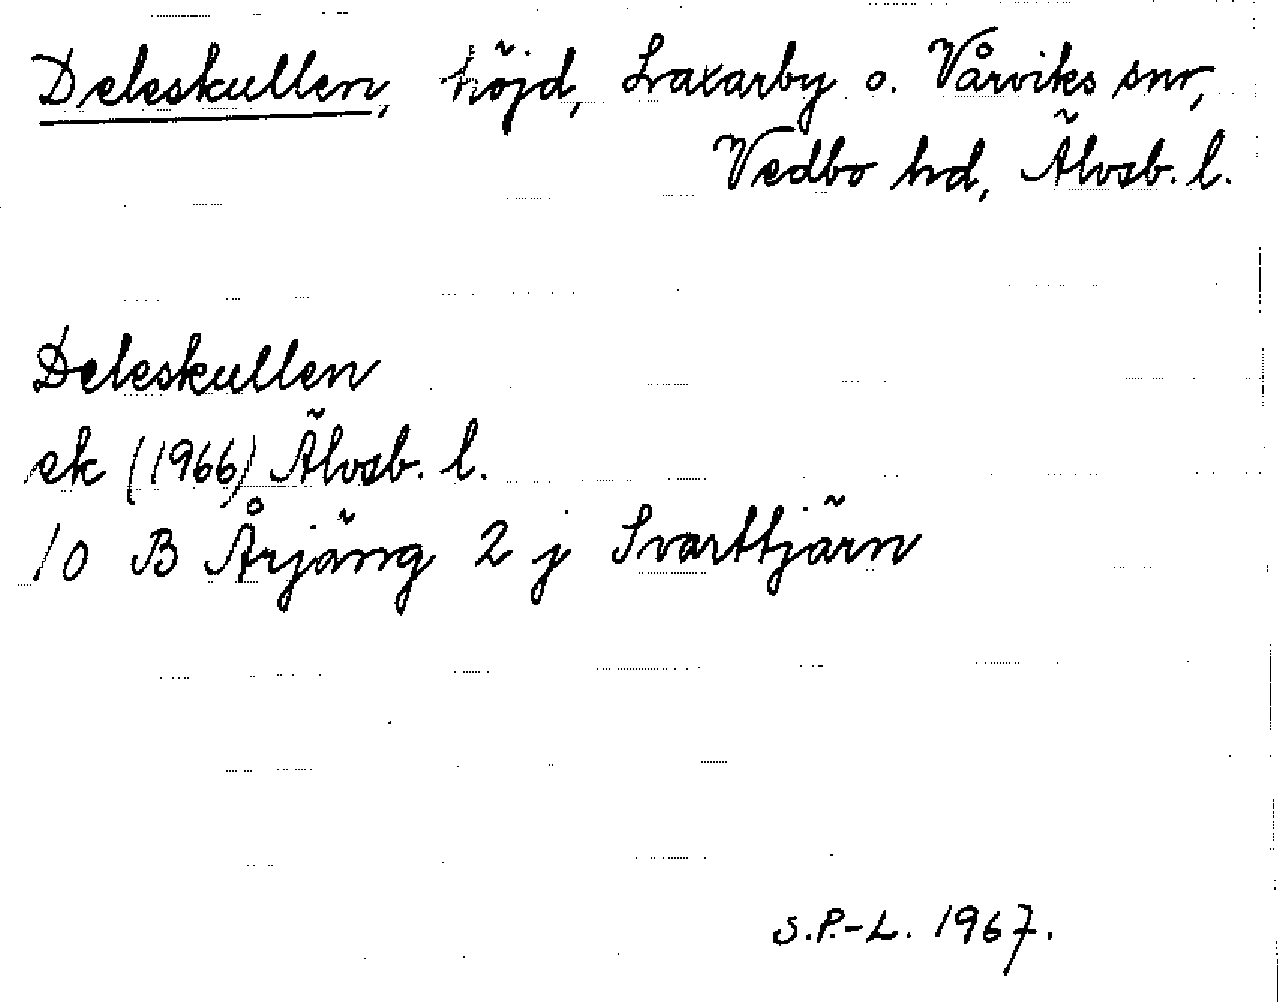 Deleskullen, höjd, Laxarby o. Vårviks snr,
Vedbo hd, Älvsb. l.
Deleskullen
ek (1966) Älvsb. l.
10 B Årjäng 2 j Svarttjärn
S.P.-L. 1967.